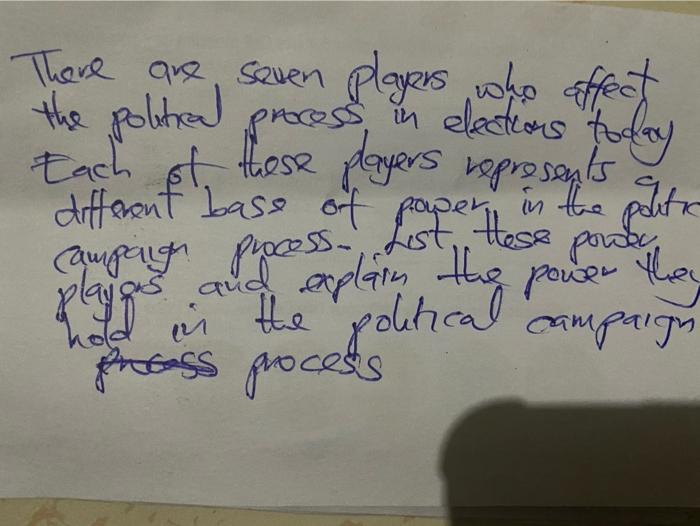 There are seven players who affect
the political process in elections today
Each of these players represents a
different base of power in the politic
campaign process. List these power
players and explain the power they
hold in the political campaign
process process